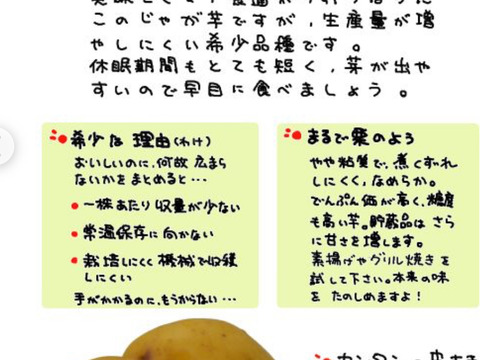 このじゃが芋ですが，生産量が増
やしにくい希少品種です。
休眠期間もとても短く，芽が出や
すいので早目に食べましょう。
希少な理由(わけ)
おいしいのに、何故広まら
ないかをまとめると…
一株あたり収量が少ない
常温保存に向かない
栽培しにくく機械で収穫
しにくい
手がかかるのに、もうからない…
まるで栗のよう
やや粘質で、煮くずれ
しにくく、なめらか。
でんぷん価が高く、糖度
も高い芋。貯蔵品はさら
に甘さを増します。
素揚げやグリル焼きを
試して下さい。本来の味
をたのしめますよ！